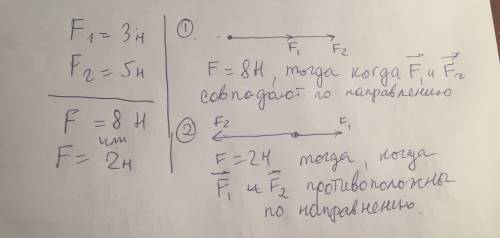 F₁ = 3н
F₂ = 5н
F = 8 Н
или
F = 2н
①
F₁ F₂
F = 8Н, тогда когда F₁ и F₂
совпадают по направлению
②
F₂ F₁
F = 2Н тогда, когда
F₁ и F₂ противоположны
по направлению.